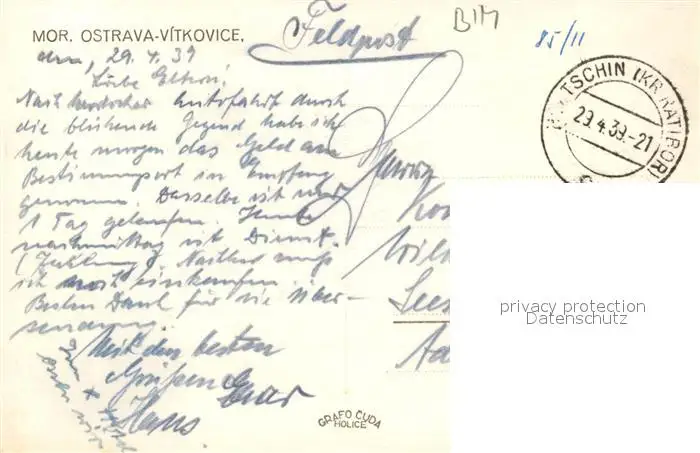 MOR. OSTRAVA-VÍTKOVICE,
den, 29.4.39
Feldpost
BIM
85/11
HULTSCHIN (KR RATIBOR)
29.4.39.-21
Liebe Eltern!
Nach Autofahrt durch
die blühende Gegend habe ich
heute morgen das Geld am
Bestimmungsort in Empfang
genommen. Dasselbe ist nur
1 Tag gelaufen. Heute
nachmittag ist Dienst.
(Zahlung) Nachher muß
ich noch einkaufen.
Besten Dank für die Über-
sendung.
Mit den besten
Grüßen Euer
Hans
Wil
See
GRAFO ČUDA
HOLICE
privacy protection
Datenschutz